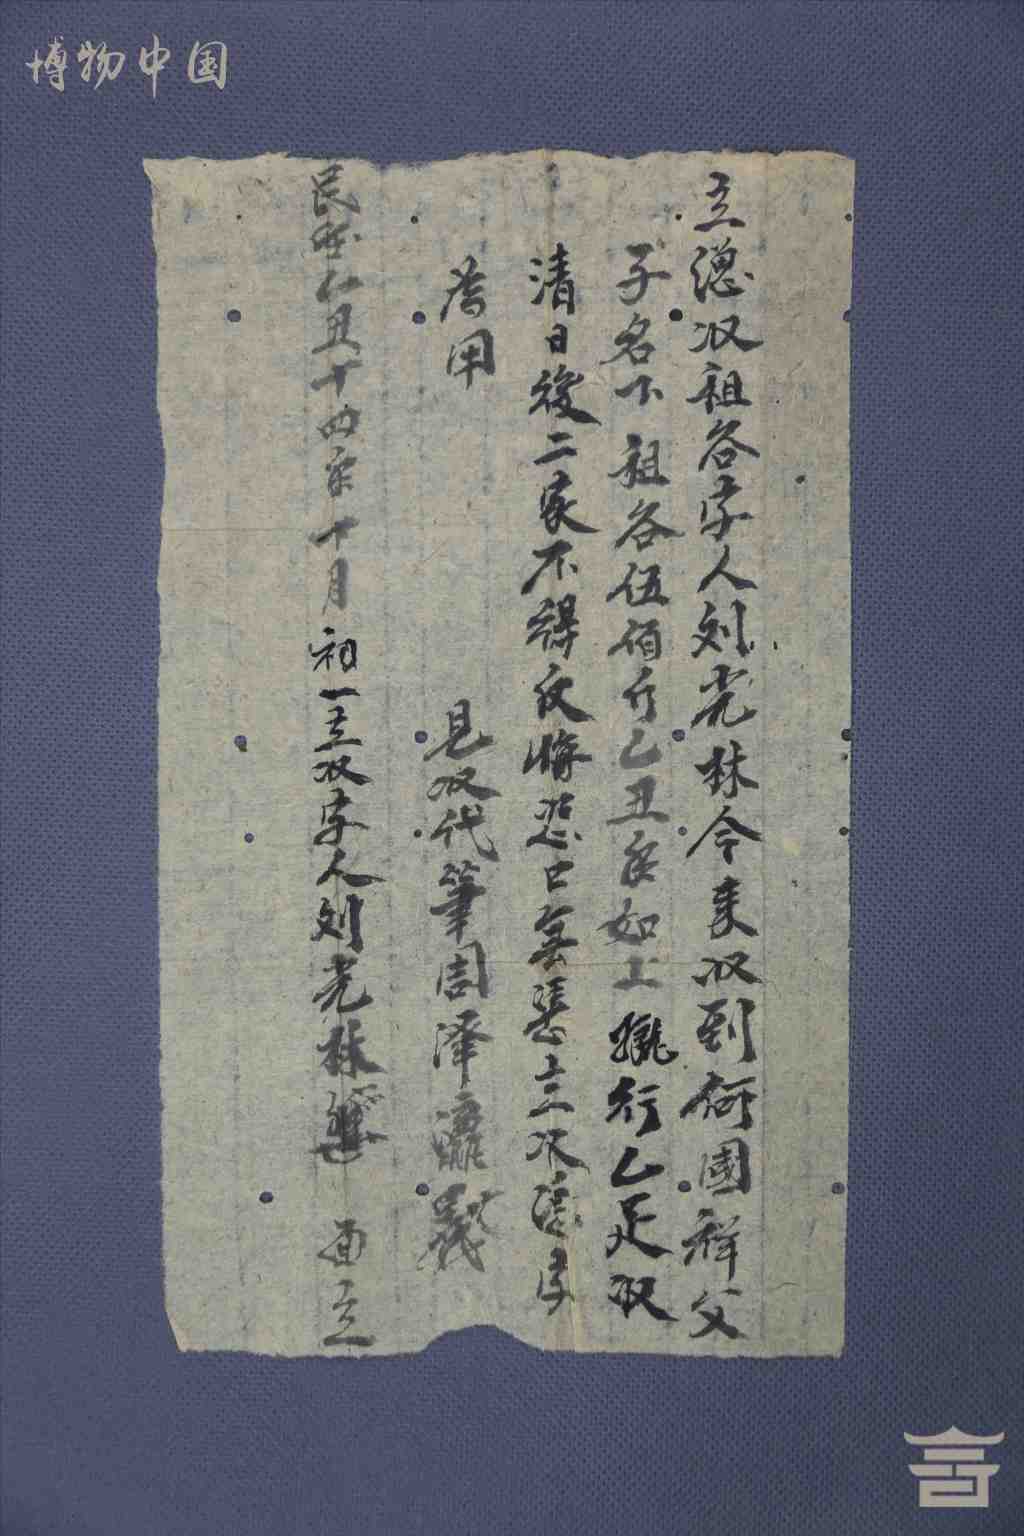 博物中国
立總收祖谷字人刘光林今来收到何國祥父
子名下祖谷伍佰斤乙丑年如上 行乙足收
清日後二家不得反悔恐口無憑立收憑字
為用
見收代筆周澤
民國乙丑十四年十月初一立收字人刘光林 面立